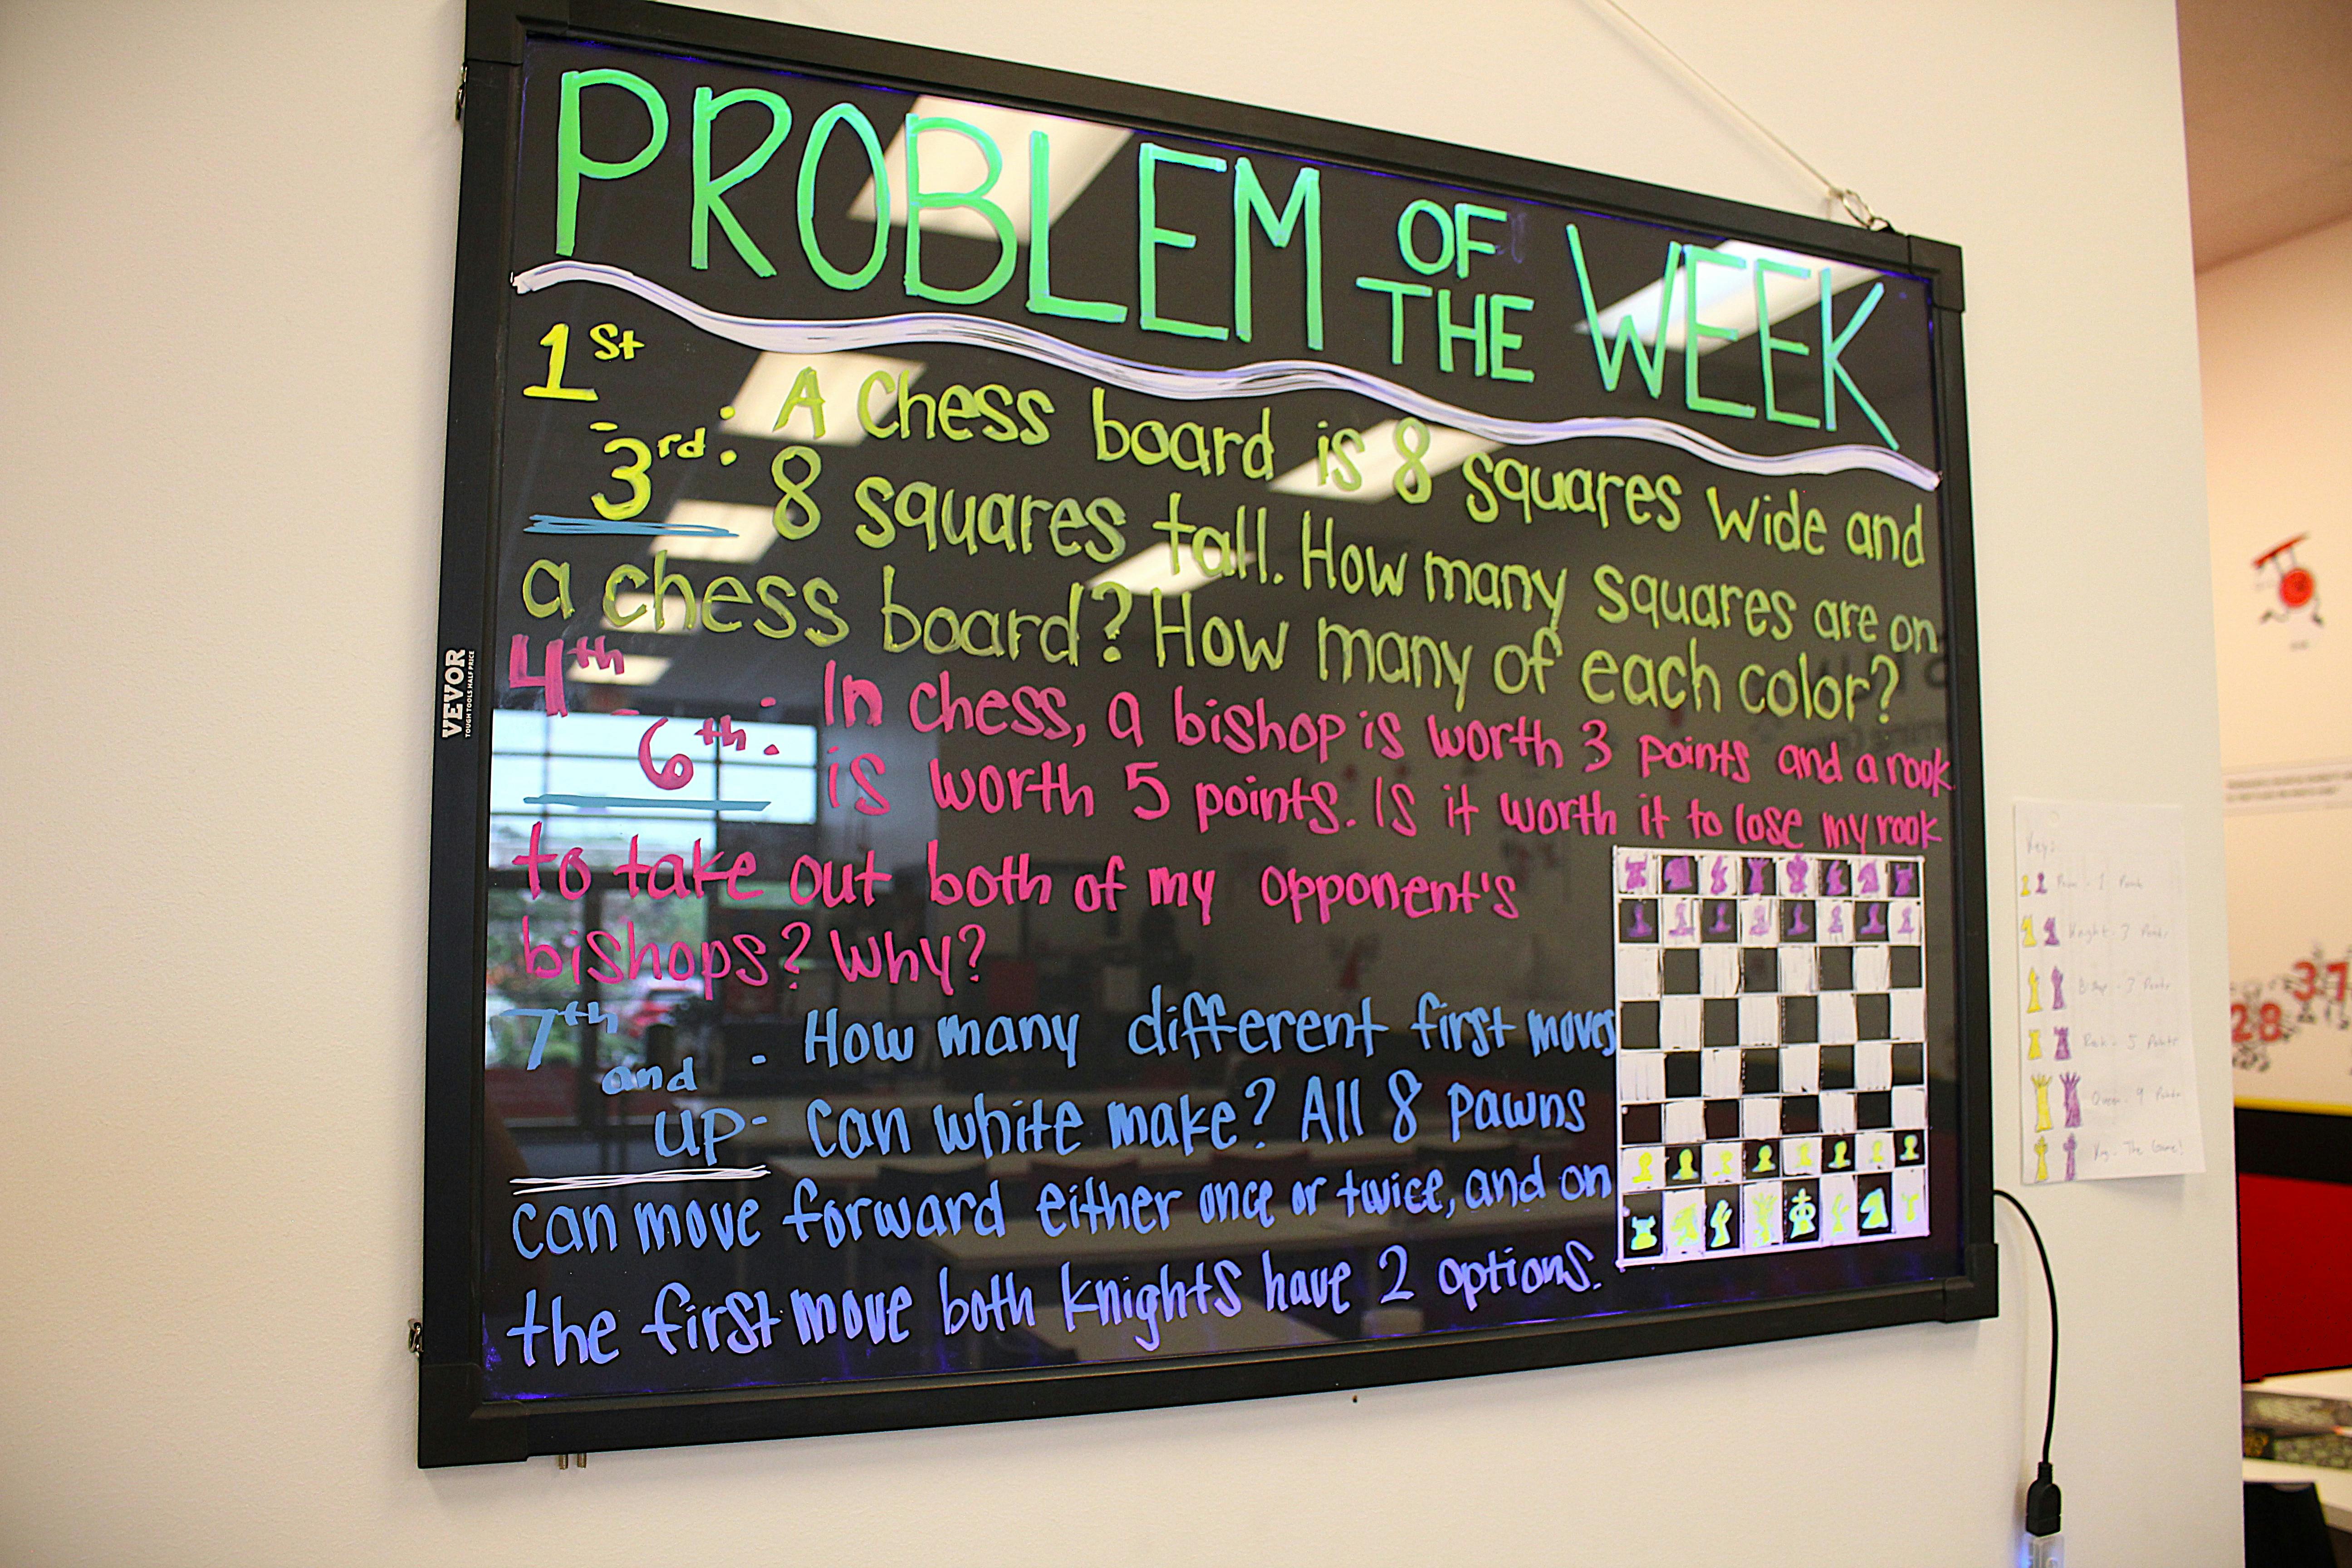 PROBLEM OF THE WEEK
1st - 3rd: A chess board is 8 squares wide and
8 squares tall. How many squares are on
a chess board? How many of each color?
4th - 6th: In chess, a bishop is worth 3 points and a rook
is worth 5 points. Is it worth it to lose my rook
to take out both of my opponent's
bishops? Why?
7th and up- How many different first moves
can white make? All 8 pawns
can move forward either once or twice, and on
the first move both knights have 2 options.
VEVOR
TOUGH TOOLS, HALF PRICE
Keys:
Pawn - 1 Points
Knight - 3 Points
Bishop - 3 Points
Rook - 5 Points
Queen - 9 Points
King - The Game!
28
37